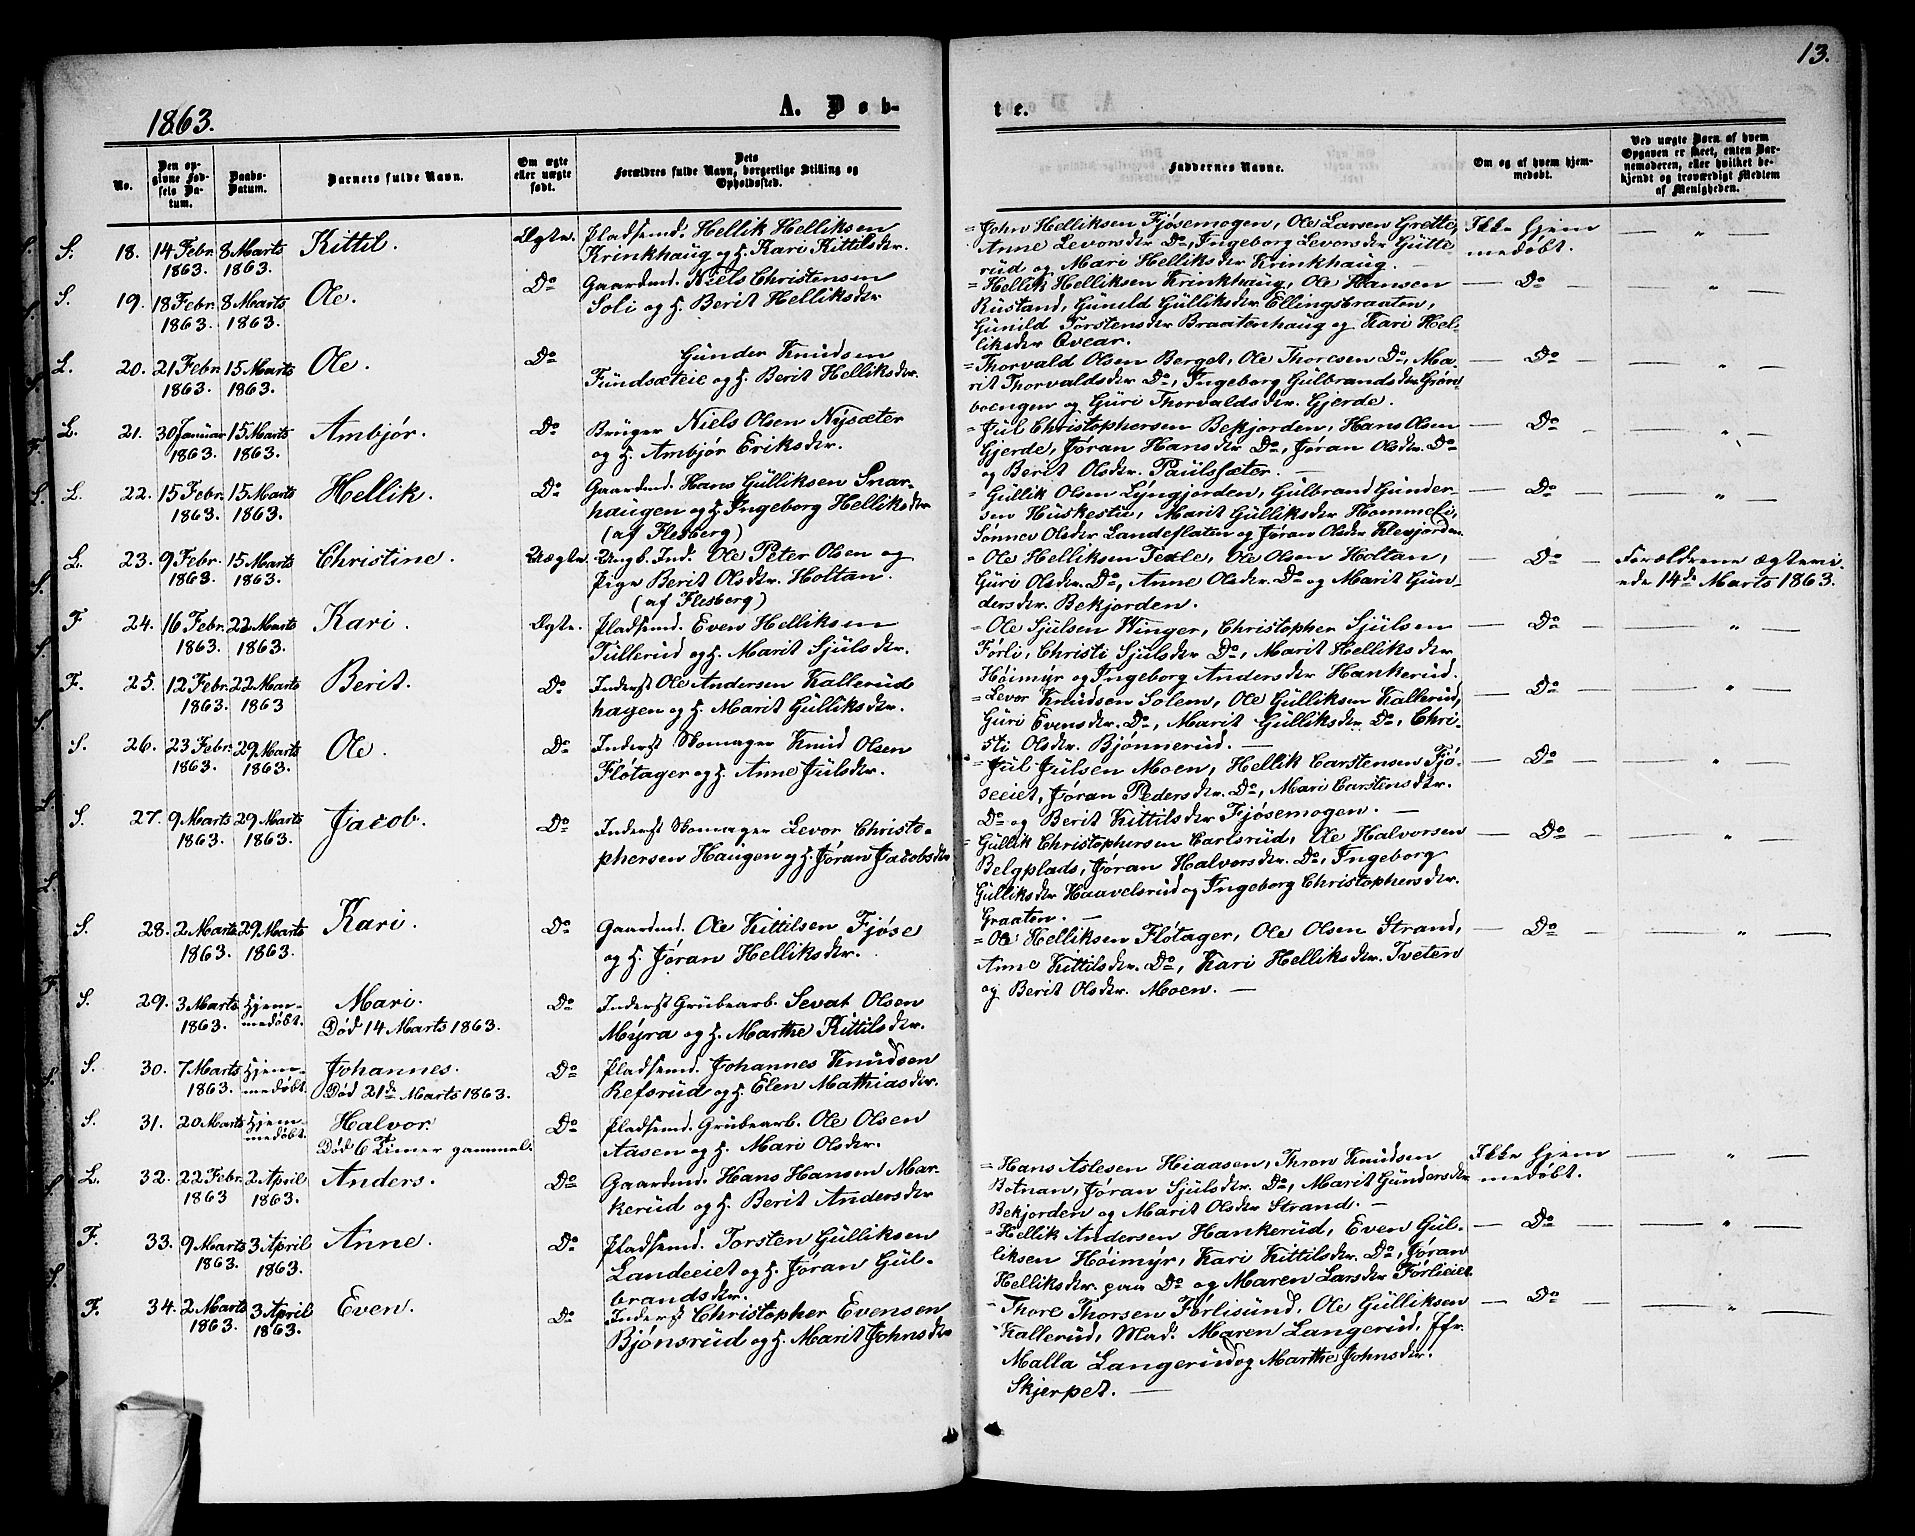 13.
1863.
A. Døb-
te.
No.
Den opgivne Fødsels Datum.
Daabs-Datum.
Barnets fulde Navn.
Om ægte eller uægte født.
Dets Forældres fulde Navn, borgerlige Stilling og Opholdssted.
Faddernes Navne.
Om og af hvem hjemmedøbt.
Ved uægte Børn af hvem Opgaven er skeet, enten Barnemoderen, eller hvilket bekjendt og troværdigt Medlem af Menigheden.
S. 18. 14 Febr. 1863. 8 Marts 1863. Kittil. Ægte. Pladsemd. Hellik Helliksen
Krinkhaug og H. Kari Kittilsdtr.
= John Helliksen Fjøsemogen, Ole Larsen Grette,
Anne Levorsdtr Do, Ingeborg Levorsdtr Gütte
rüd og Mari Helliksdtr Krinkhaug. —
Ikke hjem
medøbt.
— „ —
S. 19. 18 Febr. 1863. 8 Marts 1863. Ole. Do Gaardmd. Niels Christensen
Soli og H. Berit Helliksdtr
= Hellik Helliksen Krinkhaug, Ole Hansen
Rüstand, Günild Gülliksdtr Ellingsbraaten,
Günild Torstensdtr Braatenhaug og Kari Hel-
liksdtr Qvear.
— Do —
— „ —
L. 20. 21 Febr. 1863. 15 Marts 1863. Ole. Do Günder Knüdsen
Fündsæteie og H. Berit Helliksdtr.
= Thorvald Olsen Berget, Ole Thoresen Do, Ma-
rit Thorvaldsdtr. Do, Ingeborg Gülbrandsdtr Grøn-
boengen og Güri Thorvaldsdtr. Gjerde.
— Do —
— „ —
L. 21. 30 Januar 1863. 15 Marts 1863. Ambjør. Do Brüger Niels Olsen Nysæter
og H. Ambjør Eriksdtr.
= Jül Christophersen Bekjorden, Hans Olsen
Gjerde, Jøran Hansdtr Do, Jøran Olsdtr. Do
og Berit Olsdtr. Paülsæter. —
— Do —
— „ —
L. 22. 15 Febr. 1863. 15 Marts 1863. Hellik. Do Gaardmd. Hans Gülliksen Snar-
haugen og H. Ingeborg Helliksdtr
(af Flesberg)
= Güllik Olsen Lyngjorden, Gülbrand Günder-
sen Hüskestü, Marit Gülliksdtr
Olsdtr Landeflaten og Jøran Olsdtr
— Do —
— „ —
L. 23. 9 Febr. 1863. 15 Marts 1863. Christine. Uægte. Ungk. Ind. Ole Peter Olsen og
Pige Berit Olsdtr. Holtan.
(af Flesberg)
= Ole Helliksen Texle, Ole Olsen Holtan,
Güri Olsdtr. Do, Anne Olsdtr. Do og Marit Gün-
dersdtr. Bekjorden.
— Do —
Forældrene ægtevi-
ede 14de Marts 1863.
F 24. 16 Febr. 1863. 22 Marts 1863. Kari. Ægte. Pladsemd. Even Helliksen
Tüllerüd og H. Marit Sjülsdtr.
= Ole Sjülsen Winger, Christopher Sjülsen
Førli, Christi Sjülsdtr Do, Marit Helliksdtr
Høimÿr og Ingeborg Andersdtr Hankerüd.
— Do —
— „ —
F. 25. 12 Febr. 1863. 22 Marts 1863 Berit. Do Inderst Ole Andersen Kallerüd
hagen og H. Marit Gülliksdtr.
= Levor Knüdsen Solem, Ole Gülliksen Kallerüd,
Güri Evensdtr. Do, Marit Gülliksdtr Do, Chri-
sti Olsdtr. Bjønnerüd. —
— Do —
— „ —
S. 26. 23 Febr. 1863. 29 Marts 1863. Ole. Do Inderst Skomager Knüd Olsen
Fløtager og H. Anne Jülsdtr.
= Jül Jülsen Moen, Hellik Carstensen Fjø-
seeiet, Jøran Pedersdtr. Do, Mari Carstensdtr.
Do og Berit Kittilsdtr Fjøsemogen. —
— Do —
— „ —
S. 27. 9 Marts 1863. 29 Marts 1863. Jacob. Do Inderst Skomager Levor Christo-
phersen Haugen og H. Jøran Jacobsdtr
= Güllik Christophersen Carlsrüd, Ole Halvorsen
Belgplads, Jøran Halvorsdtr. Do, Ingeborg
Gülliksdtr Haavelsrüd og Ingeborg Christophersdtr.
Graaten. —
— Do —
— „ —
S. 28. 2 Marts 1863. 29 Marts 1863. Kari. Do Gaardmd. Ole Kittilsen Fjøse
og H. Jøran Helliksdtr.
= Ole Helliksen Fløtager, Ole Olsen Strand,
Anne Kittilsdtr. Do, Kari Helliksdtr. Tveten
og Berit Olsdtr. Moen. —
— Do —
— „ —
S. 29. 3 Marts 1863. Hjem-medøbt. Mari.
Død 14 Marts 1863.
Do Inderst Grübearb. Sevat Olsen
Mÿra og H. Marthe Kittilsdtr.
S. 30. 7 Marts 1863. Hjem-medøbt. Johannes.
Død 21de Marts 1863.
Do Pladsemd. Johannes Knüdsen
Refsrüd og H. Elen Mathiasdtr.
S. 31. 20 Marts Hjem-medøbt. Halvor.
Død 6 Timer gammel.
Do Pladsemd. Grübearb. Ole Olsen
Aasen og H. Mari Olsdtr.
L. 32. 22 Febr. 1863 2 April 1863. Anders. Do Gaardmd. Hans Hansen Mar-
kerüd og H. Berit Andersdtr
= Hans Aslesen Hiaasen, Thron Knüdsen
Botnan, Jøran Sjülsdtr. Do, Marit Gündersdtr
Bekjorden og Marit Olsdtr Strand. —
Ikke hjem
medøbt.
— „ —
F. 33. 9 Marts 1863. 3 April 1863. Anne. Do Pladsemd. Torsten Gülliksen
Landeeiet og H. Jøran Gül-
brandsdtr.
= Hellik Andersen Hankerüd, Even Gül-
liksen Høimÿr, Kari Kittilsdtr. Do, Jøran
Helliksdtr. paa Do og Maren Larsdtr Førlieiet.
— Do —
— „ —
F. 34. 2 Marts 1863. 3 April 1863. Even. Do Inderst Christopher Evensen
Bjønsrüd og H. Marit Johnsdtr
= Thore Thorsen Førlisünd, Ole Gülliksen
Kallerüd, Mad. Maren Langerüd, Jfr.
Malla Langerüd og Marthe Johnsdtr.
Skjerpet. —
— Do —
— „ —